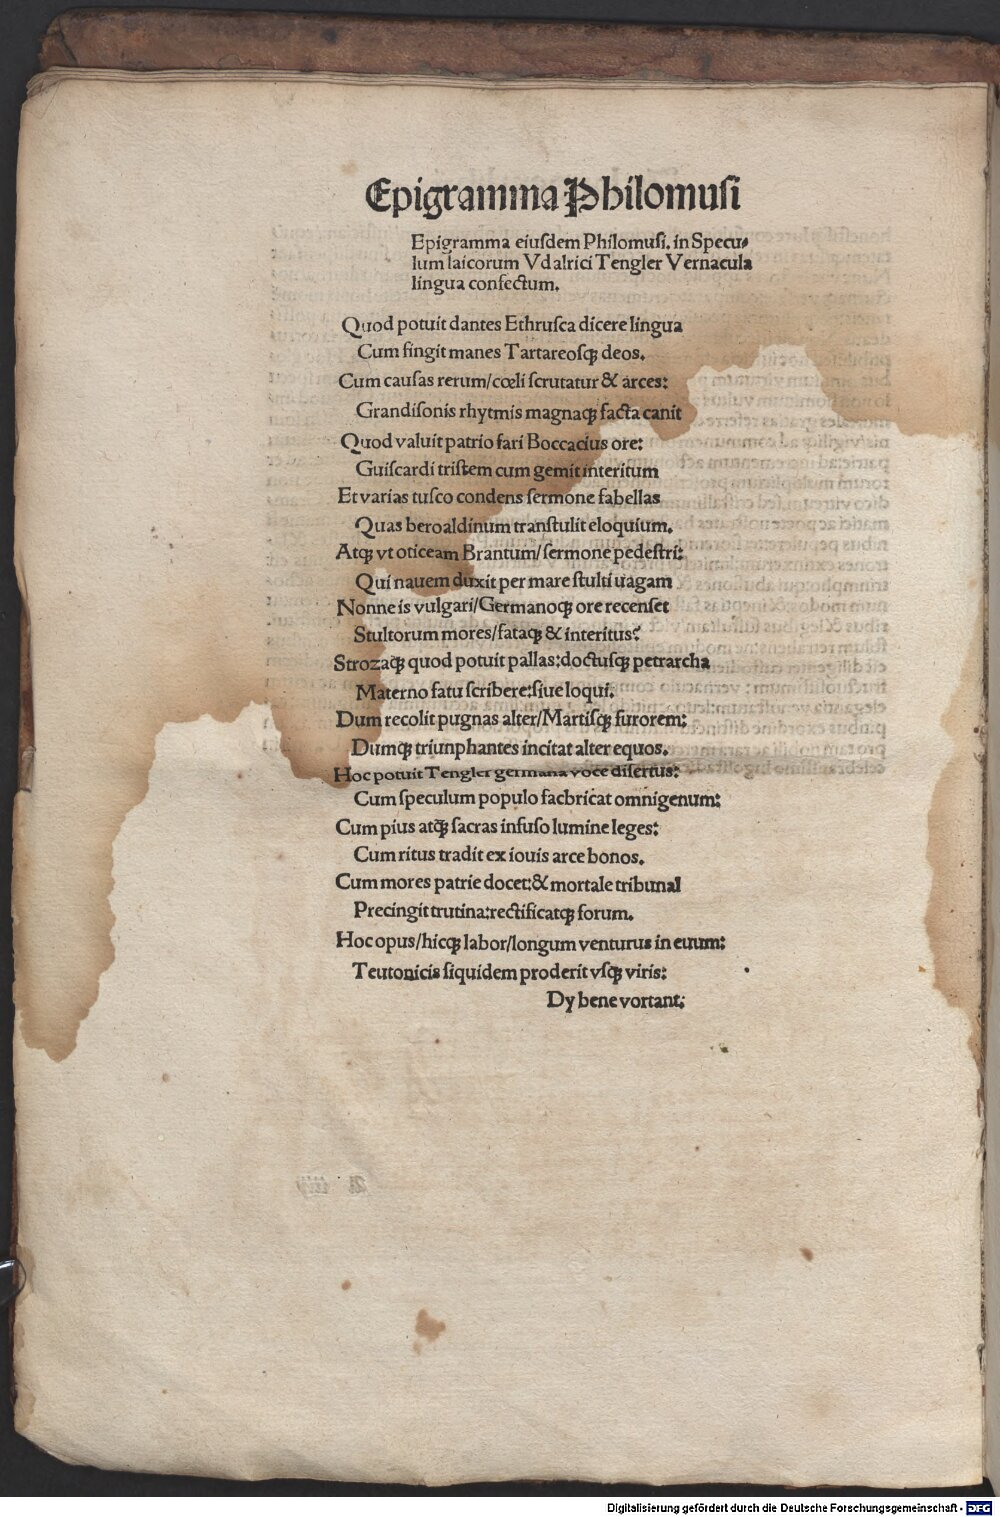 Epigramma Philomusi
Epigramma eiusdem Philomusi. in Specu-
lum laicorum Vdalrici Tengler Vernacula
lingua confectum.
Quod potuit dantes Ethrusca dicere lingua
Cum fingit manes Tartareosqꝫ deos.
Cum causas rerum/cœli scrutatur & arces:
Grandisonis rhytmis magnaqꝫ facta canit
Quod valuit patrio fari Boccacius ore:
Guiscardi tristem cum gemit interitum
Et varias tusco condens sermone fabellas
Quas beroaldinum transtulit eloquium.
Atqꝫ vt oticeam Brantum/sermone pedestri:
Qui nauem duxit per mare stulti uagam
Nonne is vulgari/Germanoqꝫ ore recenset
Stultorum mores/fataqꝫ & interitus?
Strozaqꝫ quod potuit pallas:doctusqꝫ petrarcha
Materno fatu scribere:siue loqui.
Dum recolit pugnas alter/Martisqꝫ furorem:
Dumqꝫ triunphantes incitat alter equos.
Hoc potuit Tengler germana voce disertus:
Cum speculum populo facbricat omnigenum:
Cum pius atqꝫ sacras infuso lumine leges:
Cum ritus tradit ex iouis arce bonos.
Cum mores patrie docet:& mortale tribunal
Precingit trutina:rectificatqꝫ forum.
Hoc opus/hicqꝫ labor/longum venturus in euum:
Teutonicis siquidem proderit vsqꝫ viris:
Dy bene vortant:
Digitalisierung gefördert durch die Deutsche Forschungsgemeinschaft - DFG